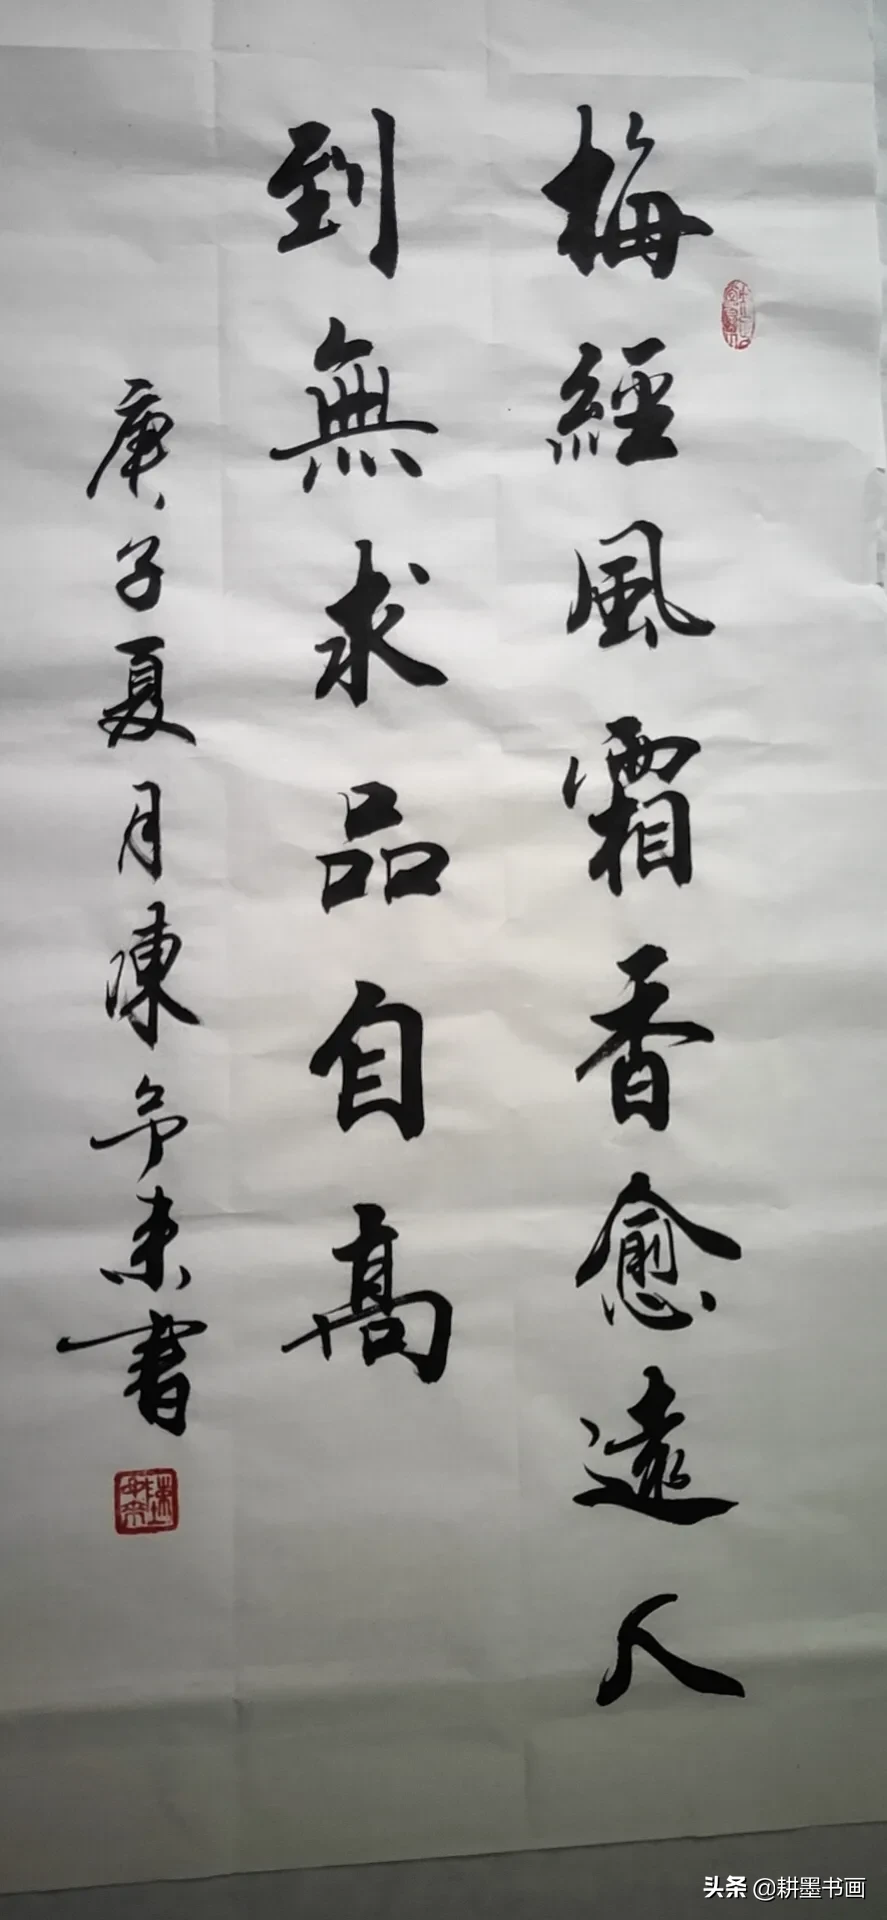 梅經風霜香愈遠人
到無求品自高
庚子夏月陳予東書
头条 @耕墨书画